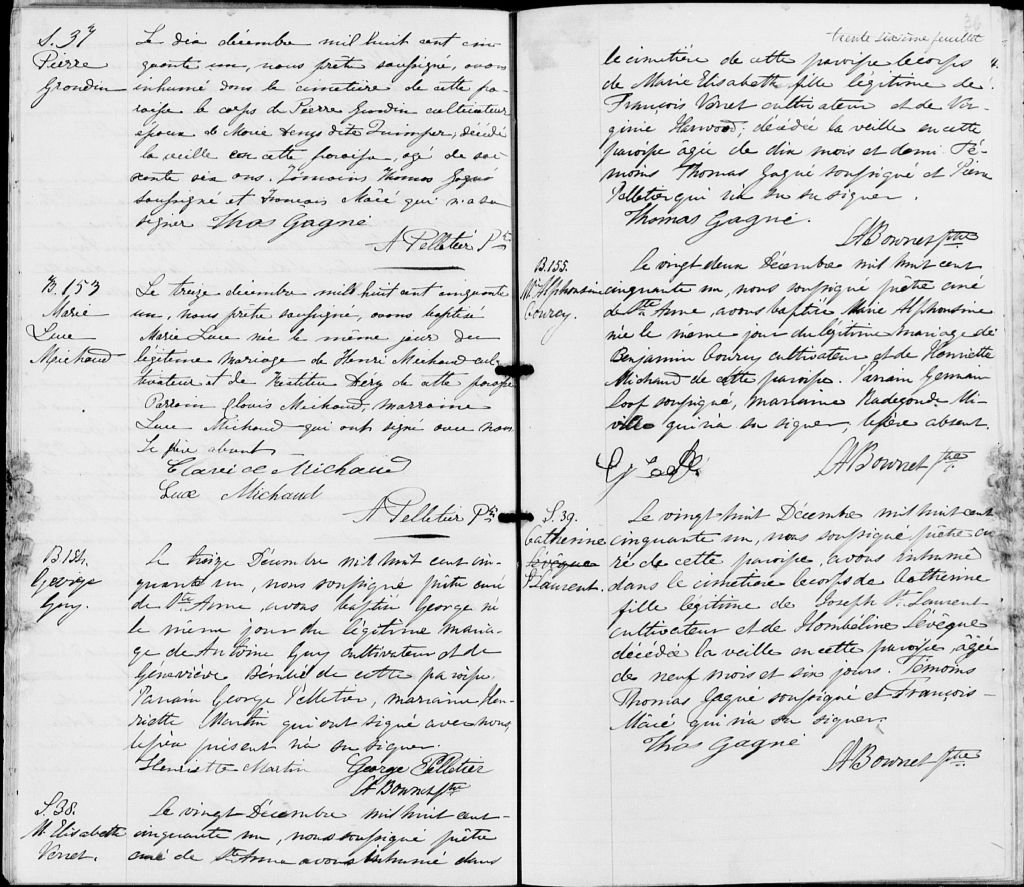 S. 37
Pierre
Grondin
Le dix décembre mil huit cent cin-
quante un, nous prêtre soussigné, avons
inhumé dans le cimetière de cette pa-
roisse le corps de Pierre Grondin cultivateur
époux de Marie Denys dite Quimper, décédé
la veille en cette paroisse, agé de soi-
xante six ans. Témoins Thomas Gagné
soussigné et François Mâié qui n'a su
signer Thos Gagné
A Pelletier Ptre
B. 153
Marie
Luce
Michaud
Le treize décembre mil huit cent cinquante
un, nous prêtre soussigné, avons baptisé
Marie Luce née le même jour du
légitime mariage de Henri Michaud cul-
tivateur et de Restitue Déry de cette paroisse
Parrain Clovis Michaud, marraine
Luce Michaud qui ont signé avec nous
Le père absent
Michaud
Luce Michaud
A Pelletier Ptre
B. 154.
George
Guy.
Le treize Décembre mil huit cent cin-
quante un, nous soussigné prêtre curé
de Ste Anne, avons baptisé George né
le même jour du légitime maria-
ge de Antoine Guy cultivateur et de
Géneviève Bérubé de cette paroisse.
Parrain George Pelletier, marraine Hen-
riette Martin qui ont signé avec nous,
le père présent n'a su signer.
Henriette Martin George Pelletier
A Bournet ptre
S. 38.
M. Elisabeth
Verret.
Le vingt Décembre mil huit cent-
cinquante un, nous soussigné prêtre
curé de Ste Anne avons inhumé dans
36
trente sixième feuillet
le cimetière de cette paroisse le corps
de Marie Elisabeth fille légitime de
François Verret cultivateur et de Vir-
ginie Harwood; décédée la veille en cette
paroisse âgée de dix mois et demi. Té-
moins Thomas Gagné soussigné et Pierre
Pelletier qui na su signer.
Thomas Gagné.
A Bournet ptre
B. 155.
Mie Alphonsine
Courcy.
Le vingt deux Décembre mil huit cent
cinquante un, nous soussigné prêtre curé
de Ste Anne, avons baptisé Marie Alphonsine
née le même jour du légitime mariage de
Benjamin Courcy cultivateur et de Henriette
Michaud de cette paroisse. Parrain Germain
soussigné, marraine Radegonde Mi-
ville qui n'a su signer; le père absent.
A Bournet ptre.
S. 39.
Catherine
Lévêque
St Laurent.
Le vingt huit Décembre mil huit cent
cinquante un, nous soussigné prêtre cu-
ré de cette paroisse, avons inhumé
dans le cimetière le corps de Catherine
fille légitime de Joseph St Laurent
cultivateur et de Hombéline Lévêque
décédée la veille en cette paroisse, âgée
de neuf mois et six jours. Témoins
Thomas Gagné soussigné et François
Mâié qui n'a su signer.
Thos Gagné
A Bournet ptre.